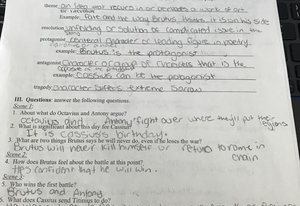 theme an idea that recurs in or pervades a work of art
or literature
Example: Fate and the way Brutus thinks it is on his side
resolution unfolding or solution of complicated issue in the
story
protagonist central character or leading figure in poetry
Example: Brutus is the protagonist
antagonist character or group of characters that is the
opposite of the protagonist
Example: Cassius can be the protagonist
tragedy character suffers extreme sorrow
III. Questions: answer the following questions.
Scene 1:
1. About what do Octavius and Antony argue?
Octavius and Antony fight over where they'll put the
legions
2. What is significant about this day for Cassius?
It is Cassius's birthday.
3. What are two things Brutus says he will never do, even if he loses the war?
Brutus will never kill himself or return to Rome in
chain
Scene 2:
4. How does Brutus feel about the battle at this point?
He's confident that he will win.
Scene 3:
5. Who wins the first battle?
Brutus and Antony
6. What does Cassius send Titinius to do?